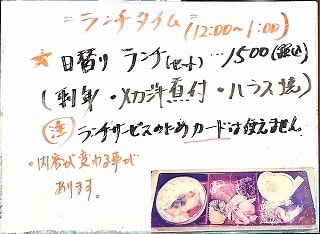 =ランチタイム=(12:00~1:00)
☆日替り ランチ(セット)…1500(税込)
(刺身・刃汁煮付・ハラス焼)
㊟ランチサービスのためカードは使えません。
・内容が変わる事が
あります。